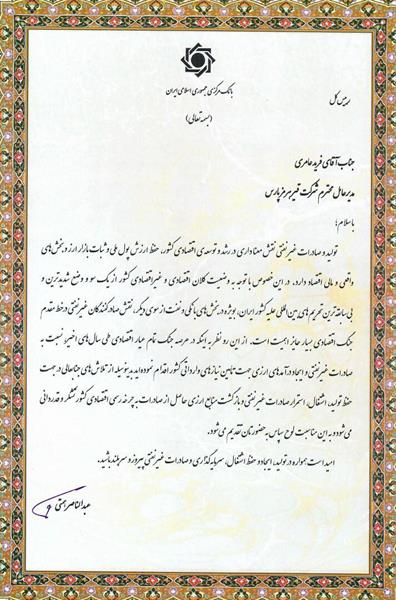 بانک مرکزی جمهوری اسلامی ایران
رییس کل
(بسمه تعالی)
جناب آقای فرید عامری
مدیرعامل محترم شرکت قیر هرمز پارس
با سلام؛
تولید و صادرات غیرنفتی نقش معناداری در رشد و توسعه‌ی اقتصادی کشور، حفظ ارزش پول ملی و ثبات بازار ارز و بخش‌های
واقعی و مالی اقتصاد دارد. در این خصوص با توجه به وضعیت کلان اقتصادی و غیراقتصادی کشور از یک سو و وضع شدیدترین و
بی‌سابقه‌ترین تحریم‌های بین‌المللی علیه کشور ایران، بویژه در بخش‌های بانکی و نفت از سوی دیگر، نقش صادرکنندگان غیرنفتی در خط مقدم
جنگ اقتصادی بسیار حائز اهمیت است. از این رو نظر به اینکه در عرصه جنگ تمام عیار اقتصادی طی سال‌های اخیر، نسبت به
صادرات غیرنفتی و ایجاد درآمدهای ارزی جهت تامین نیازهای وارداتی کشور اقدام نموده‌اید، بدینوسیله از تلاش‌های جنابعالی در جهت
حفظ تولید، اشتغال، استمرار صادرات غیرنفتی و بازگشت منابع ارزی حاصل از صادرات به چرخه رسمی اقتصادی کشور تشکر و قدردانی
می‌شود و به این مناسبت لوح سپاس به حضورتان تقدیم می‌شود.
امید است همواره در تولید، ایجاد و حفظ اشتغال، سرمایه‌گذاری و صادرات غیرنفتی پیروز و سربلند باشید.
عبدالناصر همتی